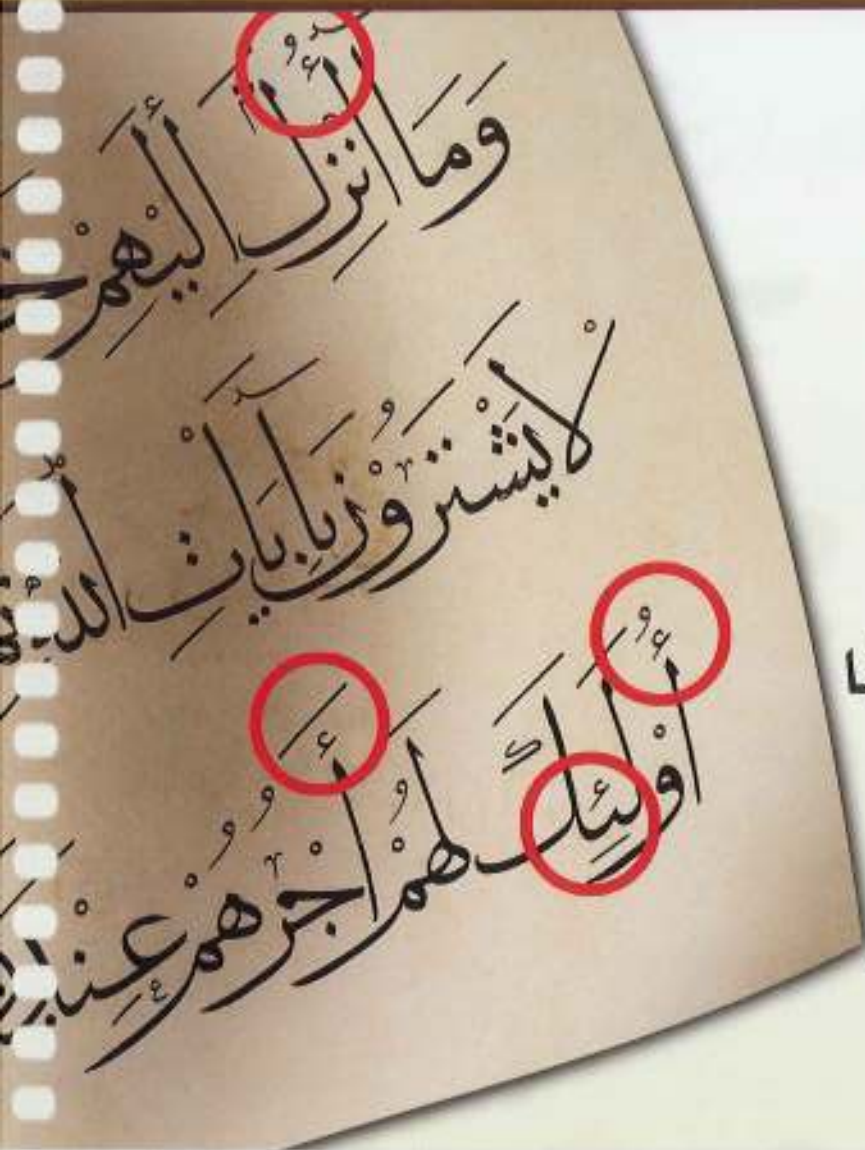 وَمَآ أُنْزِلَ إِلَيْهِمْ
لَا يَشْتَرُوْنَ بِآيَاتِ اللهِ
أُوْلَئِكَ لَهُمْ أَجْرُهُمْ عِنْدَ